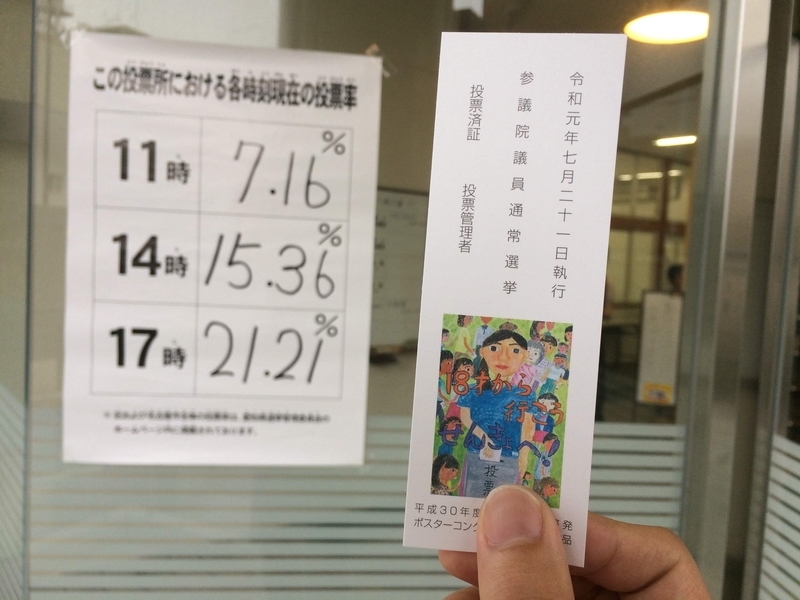 この投票所における各時刻現在の投票率
11時 7.16%
14時 15.36%
17時 21.21%
ホームページ内に掲載されております。
令和元年七月二十一日執行
参議院議員通常選挙
投票済証 投票管理者
18才から
行こう
せんきょへ!
投票
平成30年度 発
ポスターコン 品